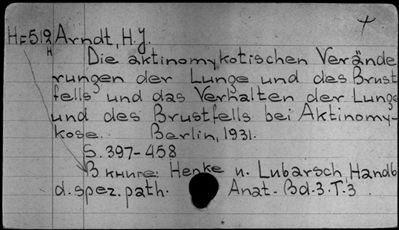 H=519 Arndt, H.J.
H
Die aktinomykotischen Verände
rungen der Lunge und des Brust
fells und das Verhalten der Lunge
und des Brustfells bei Aktinomy-
kose. Berlin, 1931.
S. 397-458
В книге: Henke u. Lubarsch, Handb
d. spez. path. Anat. Bd. 3. T. 3